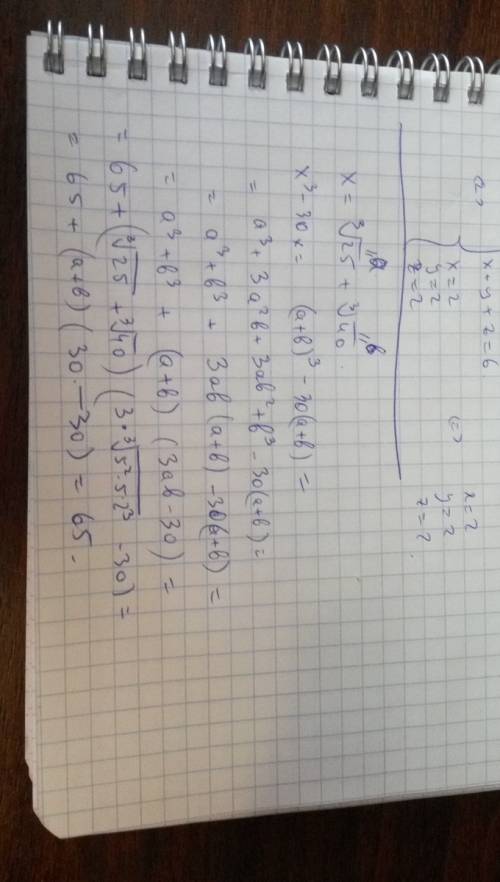 a>
x + y + z = 6
x = 2
y = 2
z = 2
(=)
x = 2
y = 2
z = 2
x = ∛25 + ∛40 .
"a "b
x³ - 30x = (a+b)³ - 30(a+b) =
= a³ + 3a²b + 3ab² + b³ - 30(a+b) =
= a³ + b³ + 3ab(a+b) - 30(a+b) =
= a³ + b³ + (a+b) (3ab - 30) =
= 65 + (∛25 + ∛40) (3·∛5²·5·2³ - 30) =
= 65 + (a+b) (30 - 30) = 65.